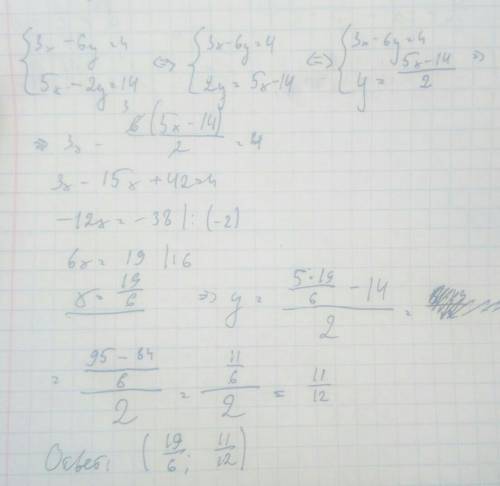 {3x - 6y = 4 ⇔ {3x - 6y = 4 ⇔ {3x - 6y = 4
{5x - 2y = 14 {2y = 5x - 14 {y = (5x - 14)/2 ⇒
⇒ 3x - 6̸³(5x - 14)/2 = 4
3x - 15x + 42 = 4
-12x = -38 | : (-2)
6x = 19 | : 6
x = 19/6 ⇒ y = ((5·19)/6 - 14)/2 =
= ((95 - 84)/6)/2 = (11/6)/2 = 11/12
Ответ: (19/6; 11/12)